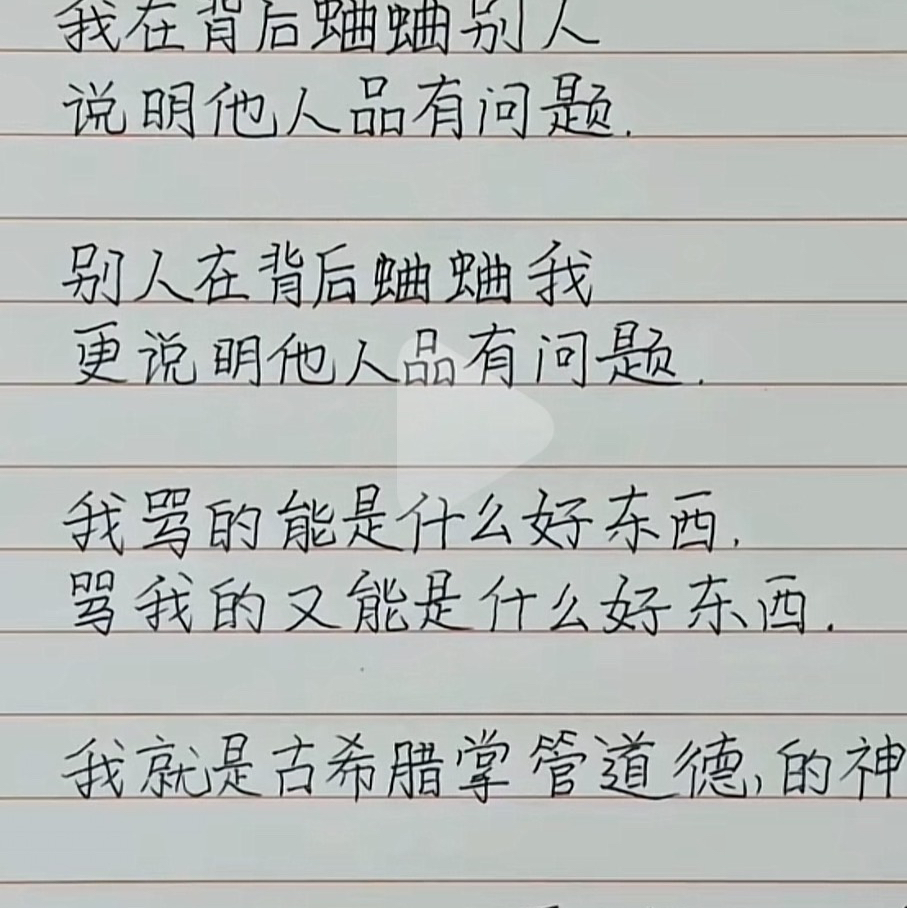 我在背后蛐蛐别人
说明他人品有问题.
别人在背后蛐蛐我
更说明他人品有问题.
我骂的能是什么好东西,
骂我的又能是什么好东西.
我就是古希腊掌管道德,的神